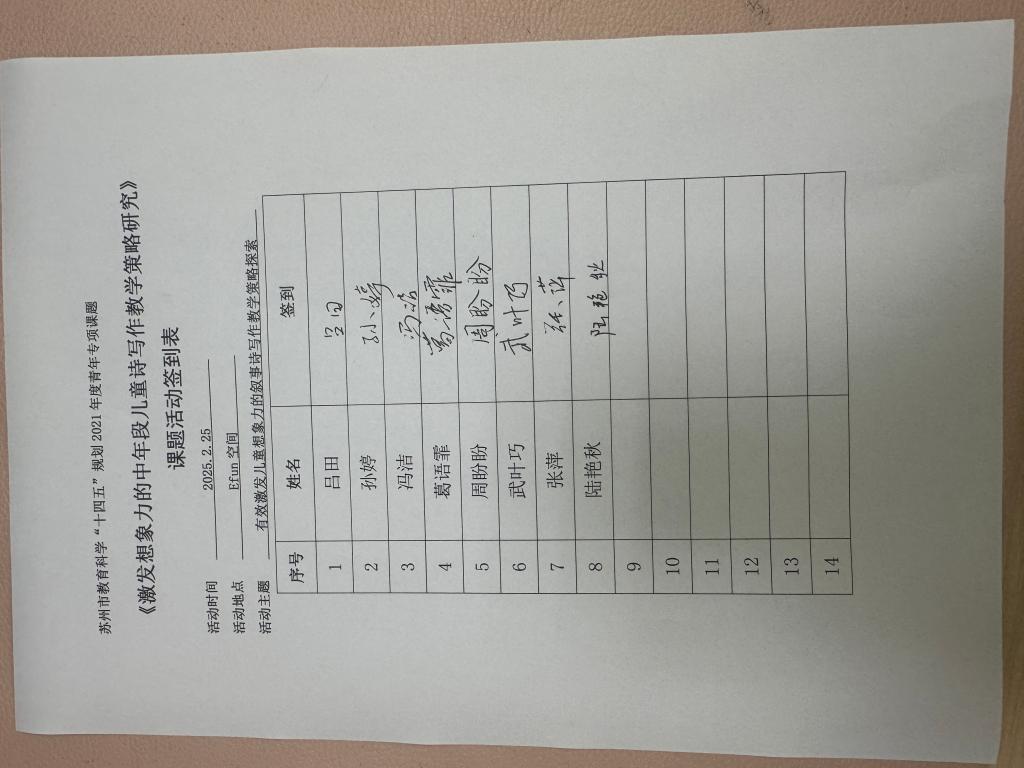 苏州市教育科学“十四五”规划 2021 年度青年专项课题
《激发想象力的中年段儿童诗写作教学策略研究》
课题活动签到表
活动时间 2025.2.25
活动地点 Efun 空间
活动主题 有效激发儿童想象力的叙事诗写作教学策略探索
序号 姓名 签到
1 吕田 吕田
2 孙婷 孙婷
3 冯洁 冯洁
4 葛语霏 葛语霏
5 周盼盼 周盼盼
6 武叶巧 武叶巧
7 张萍 张萍
8 陆艳秋 陆艳秋
9
10
11
12
13
14